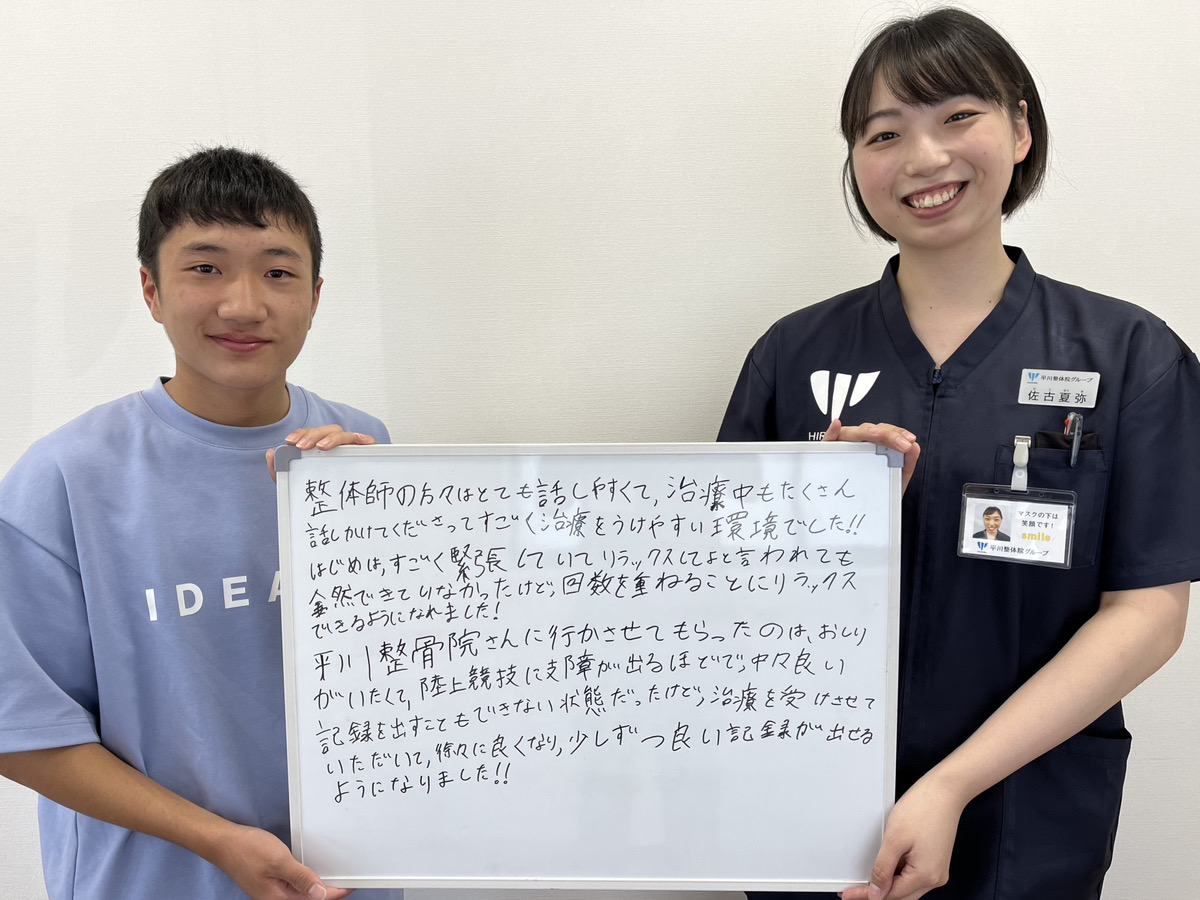 整体師の方々はとても話しやすくて、治療中もたくさん
話しかけてくださってすごく治療をうけやすい環境でした!!
はじめは、すごく緊張していてリラックスしてよと言われても
全然できていなかったけど、回数を重ねることにリラックス
できるようになれました!
平川整骨院さんに行かさせてもらったのは、おしり
がいたくて、陸上競技に支障が出るほどで、中々良い
記録を出すこともできない状態だったけど、治療を受けさせて
いただいて、徐々に良くなり、少しずつ良い記録が出せる
ようになりました!!
IDEA
HIR
平川整体院グループ
佐古夏弥
マスクの下は
笑顔です!
smile
平川整体院グループ